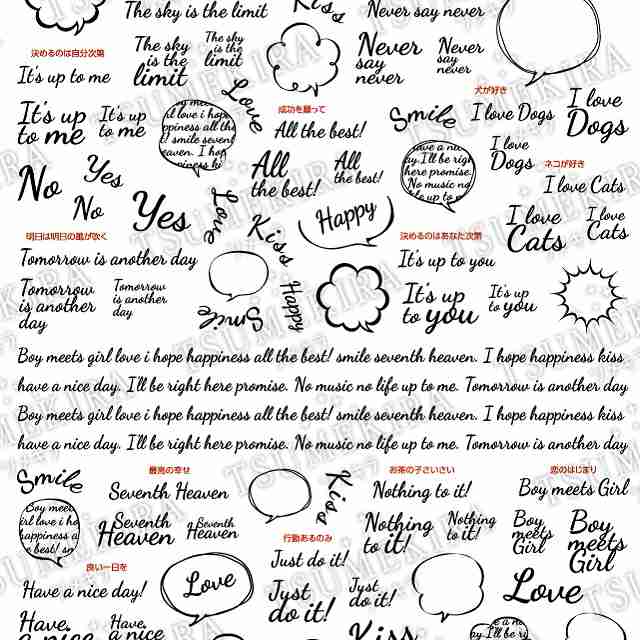 The sky is the limit
Kiss
Never say never
決めるのは自分次第
The sky
is the
limit
The sky
is the
limit
Never
say
never
Never
say
never
It's up to me
Love
成功を願って
犬が好き
It's up
to me
It's up
to me
All the best!
Smile
I love Dogs
I love
Dogs
I love
Dogs
ネコが好き
No
Yes
No
Yes
All
the best!
All
the best!
I love Cats
Love
Kiss
Happy
I love
Cats
I love
Cats
明日は明日の風が吹く
決めるのはあなた次第
Tomorrow is another day
It's up to you
Tomorrow
is another
day
Tomorrow
is another
day
Smile
Happy
It's up
to you
It's up
to you
Boy meets girl love i hope happiness all the best! smile seventh heaven. I hope happiness kiss
have a nice day. I'll be right here promise. No music no life up to me. Tomorrow is another day
Boy meets girl love i hope happiness all the best! smile seventh heaven. I hope happiness kiss
have a nice day. I'll be right here promise. No music no life up to me. Tomorrow is another day
Smile
最高の幸せ
Kiss
お茶の子さいさい
恋のはじまり
Seventh Heaven
Nothing to it!
Boy meets Girl
Seventh
Heaven
Seventh
Heaven
Nothing
to it!
Nothing
to it!
Boy
meets
Girl
Boy
meets
Girl
行動あるのみ
良い一日を
Just do it!
Have a nice day!
Love
Just
do it!
Just
do it!
Love
Have
a nice
Have
a nice
Kiss
TSUMEKIRA